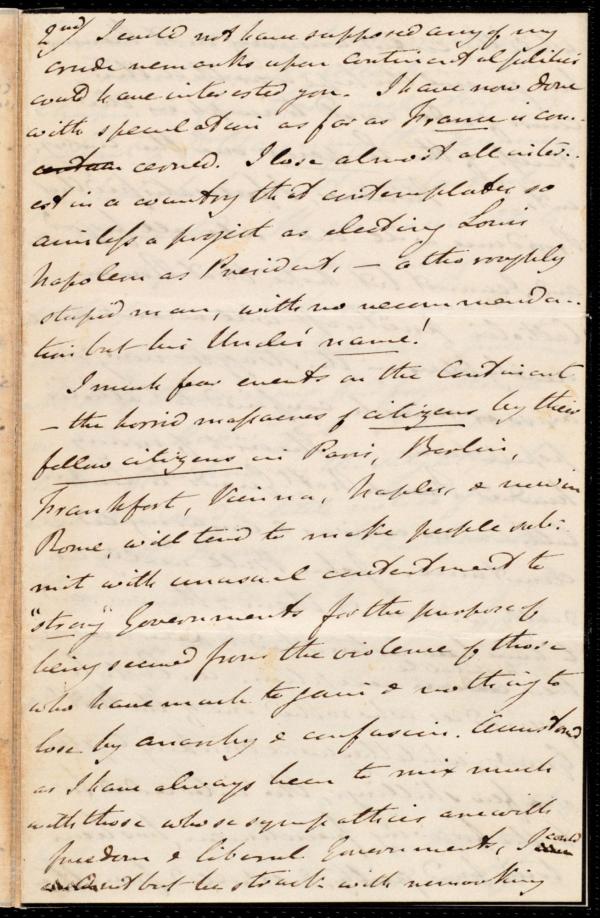 2nd) I could not have supposed any of my
crude remarks upon Continental politics
could have interested you. I have now done
with speculation as far as France is con-
cerned. I lose almost all inter-
est in a country that contemplates so
aimless a project as electing Louis
Napoleon as President, — a thoroughly
stupid man, with no recommenda-
tion but his Uncle's name!
I much fear events on the Continent
— the horrid massacres of citizens by their
fellow citizens in Paris, Berlin,
Frankfort, Vienna, Naples & now in
Rome, will tend to make people sub-
mit with unusual contentment to
"strong" Governments for the purpose of
being secured from the violence of those
who have much to gain & nothing to
lose by anarchy & confusion. Accustomed
as I have always been to mix much
with those whose sympathies are with
freedom & liberal Governments, I could
not but be struck with remarking